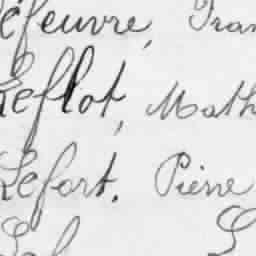 efeuvre, Fran
Leflot, Math
Lefort. Pierre
Lef L